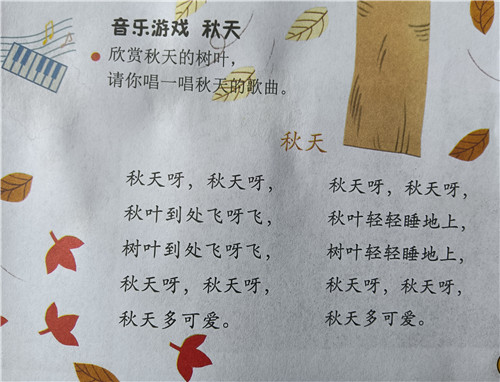 音乐游戏 秋天
欣赏秋天的树叶，
请你唱一唱秋天的歌曲。
秋天
秋天呀，秋天呀，
秋叶到处飞呀飞，
树叶到处飞呀飞，
秋天呀，秋天呀，
秋天多可爱。
秋天呀，秋天呀，
秋叶轻轻睡地上，
树叶轻轻睡地上，
秋天呀，秋天呀，
秋天多可爱。